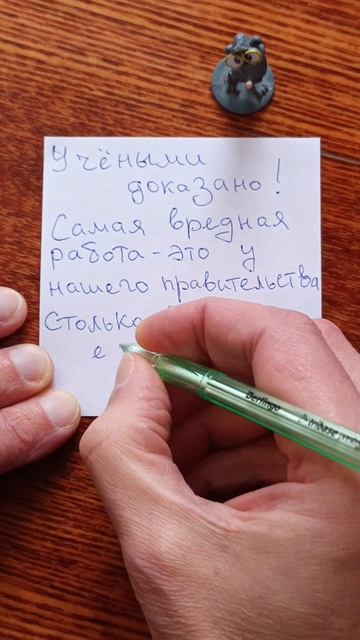 Учёными
доказано!
Самая вредная
работа - это у
нашего правительства
Столько
е
Berlingo